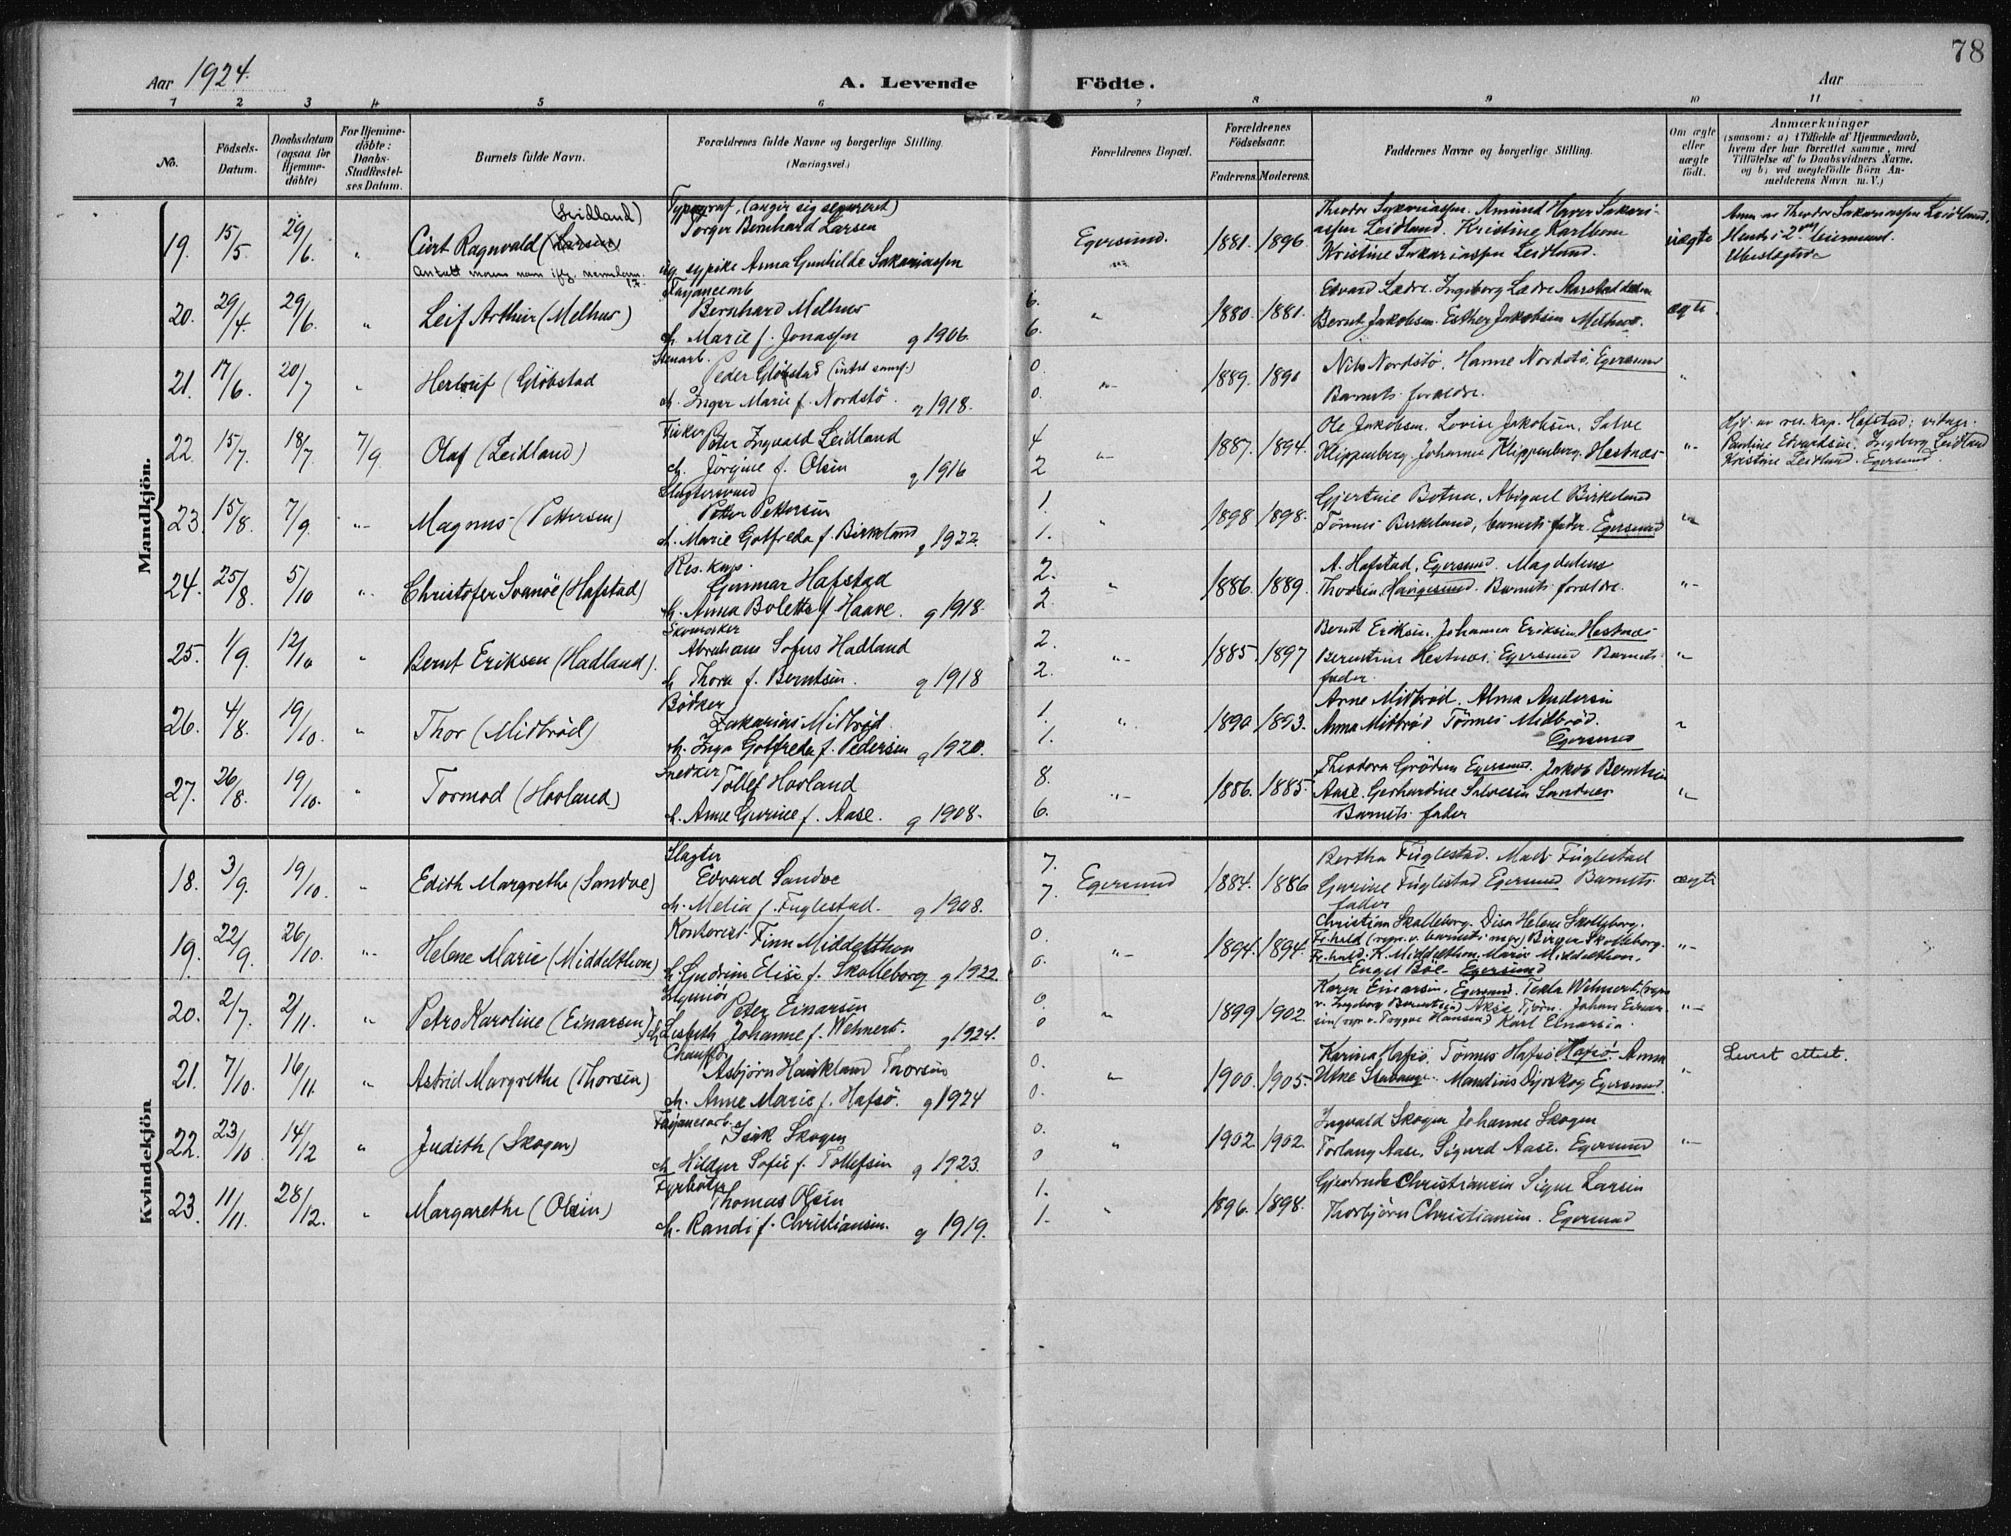 78
Aar 1924.
A. Levende Födte.
Aar
1 2 3 4 5 6 7 8 9 10 11
No.
Födsels-Datum.
Daabsdatum (ogsaa for Hjemme-döbte)
For Hjemme-döbte: Daabs-Stadfæstel-ses Datum.
Barnets fulde Navn.
Forældrenes fulde Navne og borgerlige Stilling. (Næringsvei.)
Forældrenes Bopæl.
Forældrenes Födselsaar.
Faderens. Moderens.
Faddernes Navne og borgerlige Stilling.
Om ægte eller uægte födt.
Anmærkninger
(saasom: a) i Tilfælde af Hjemmedaab, hvem der har forrettet samme, med Tilföielse af to Daabsvidners Navne, og b) ved uægtefödte Börn An-melderens Navn m. V.)
Mandkjön.
(Leidland) Typograf. (angir sig separeret)
19. 15/5 29/6 " Curt Ragnvald (Larsen) Torger Bernhard Larsen
ug. sypike Anna Gunhilde Sakariassen
Egersund. 1881. 1896.
Theodor Sakariassen. Amund Sakari-
assen Leidland. Kristine Karlsen
Kristine Sakariassen Leidland. uægte
Anm. av Theodor Sakariassen Leidland,
Ubeslegtede
Fajancearb
20. 29/4. 29/6. " Leif Arthur (Melhus) Bernhard Melhus
h. Marie f. Jonassen g 1906. 6. 6. " 1880. 1881.
Edvard Lædre. Ingeborg Lædre Aarstaddalen
Bernt Jakobsen. Esther Jakobsen Melhus. ægte
Stenarb.
21. 17/6 20/7 " Herleuf (Gløbstad Peder Gløbstad
h. Inger Marie f. Nordstø. g 1918. 0. 0. "- 1889. 1890
Nils Nordstø. Hanne Nordstø, Egersund
Barnets forældre. "
Fisker
22. 15/7. 18/7. 7/9. Olaf (Leidland) Peter Ingvald Leidland
h. Jörgine f. Olsen g 1916 4 2 "- 1887. 1894.
Ole Jakobsen. Lovise Jakobsen. Salve
Klippenberg. Johanne Klippenberg. Hestnæs "-
Hjd. av res. kap. Hafstad: vitner:
Pauline Edvardsen. Ingeborg Leidland
Kristine Leidland. Egersund.
Slagtersvend
23. 15/8. 7/9. "- Magnus (Pettersen) Peter Pettersen
h. Marie Gotfreda f. Birkeland g 1922. 1. 1. " 1898 1898.
Gjertine Botne, Abigael Birkeland
Tönnes Birkeland, barnets fader. Egersund "
Res. kap.
24. 25/8. 5/10 "- Christofer Svanöe (Hafstad) Gunnar Hafstad
h. Anna Bolette f. Haave. g 1918. 2. 2. " 1886. 1889.
A. Hafstad, Egersund. Magdalene
Thorsen, Haugesund. Barnets forældre. "-
Skomaker
25. 1/9. 12/10 " Bernt Eriksen (Hadland). Abraham Sofus Hadland
h. Thora f. Berntsen. g 1918 2. 2. "- 1885. 1897
Bernt Eriksen, Johanna Eriksen Hestnæs
Berentine Hestnæs. Egersund Barnets
fader. "
Bödker
26. 4/8. 19/10. " Thor (Midbrød) Zakarias Midbrød
h. Inga Gotfreda f. Pedersen g 1920. 1. 1. " 1890 1893.
Arne Midbrød. Alma Andersen
Anna Midbrød Tönnes Midbrød.
Egersund "
Snedker
27. 26/8. 19/10. " Tormod (Hovland) Tollef Hovland
h. Anne Gurine f. Aase. g 1908. 8. 6. "- 1886. 1885.
Theodora Grødem Egersund. Jakob Berntsen
Aase. Gerhardine Salvesen Sandnes
Barnets fader "
Kvindekjön
Slagter
18. 3/9. 19/10. " Edith Margrethe (Sandve) Edvard Sandve
h. Melia f. Fuglestad. g 1908. 7. 7. Egersund 1884. 1886
Bertha Fuglestad. Mads Fuglestad
Gurine Fuglestad Egersund Barnets
fader ægte
Kontorist
19. 22/9. 26/10. "- Helene Marie (Middelthon) Finn Middelthon
h. Gudrun Elise f. Skolleborg g 1922. 0. 0. "- 1894. 1894.
Christian Skolleborg. Disa Helene Skolleborg.
Fr.hald (repr. v. barnets mor) Birger Skolleborg.
Fr.hald. K. Middelthon. Marie Middelthon.
Engel Böe. Egersund "-
20. 2/7. 2/11. " Petro Karoline (Einarsen) Peter Einarsen
h. Lisbeth Johanne f. Wehnert. g 1924. 0. 0 " 1899 1902.
Karen Einarsen, Egersund. Tekla Wehnert (repr.
v. Ingeborg Berentsen) Johan Einar-
sen (repr v. Trygve Hansen) Karl Einarsen. "-
Chauffør
21. 7/10. 16/11. " Astrid Margrethe (Thorsen) Asbjörn Haukland Thorsen
h. Anne Marie f. Hafsö. g 1924 0. 0. " 1900. 1905.
Karina Hafsö, Tönnes Hafsö. Hafsö. Anna
Utne Stavanger. Mandius Dyrskog Egersund. "
Levert attest.
Fajancearb.
22. 23/10 14/12 " Judith (Skogen) Isak Skogen
h. Hildur Sofie f. Tollefsen g 1923. 0. 0 " 1902. 1902.
Ingvald Skogen Johanne Skogen
Torlaug Aase. Sigurd Aase. Egersund "-
Fyrbøter
23. 11/11. 28/12. " Margarethe (Olsen) Thomas Olsen
h. Randi f. Christiansen. g 1919. 1. 1. " 1896. 1898.
Gjertrude Christiansen Signe Larsen
Thorbjörn Christiansen. Egersund